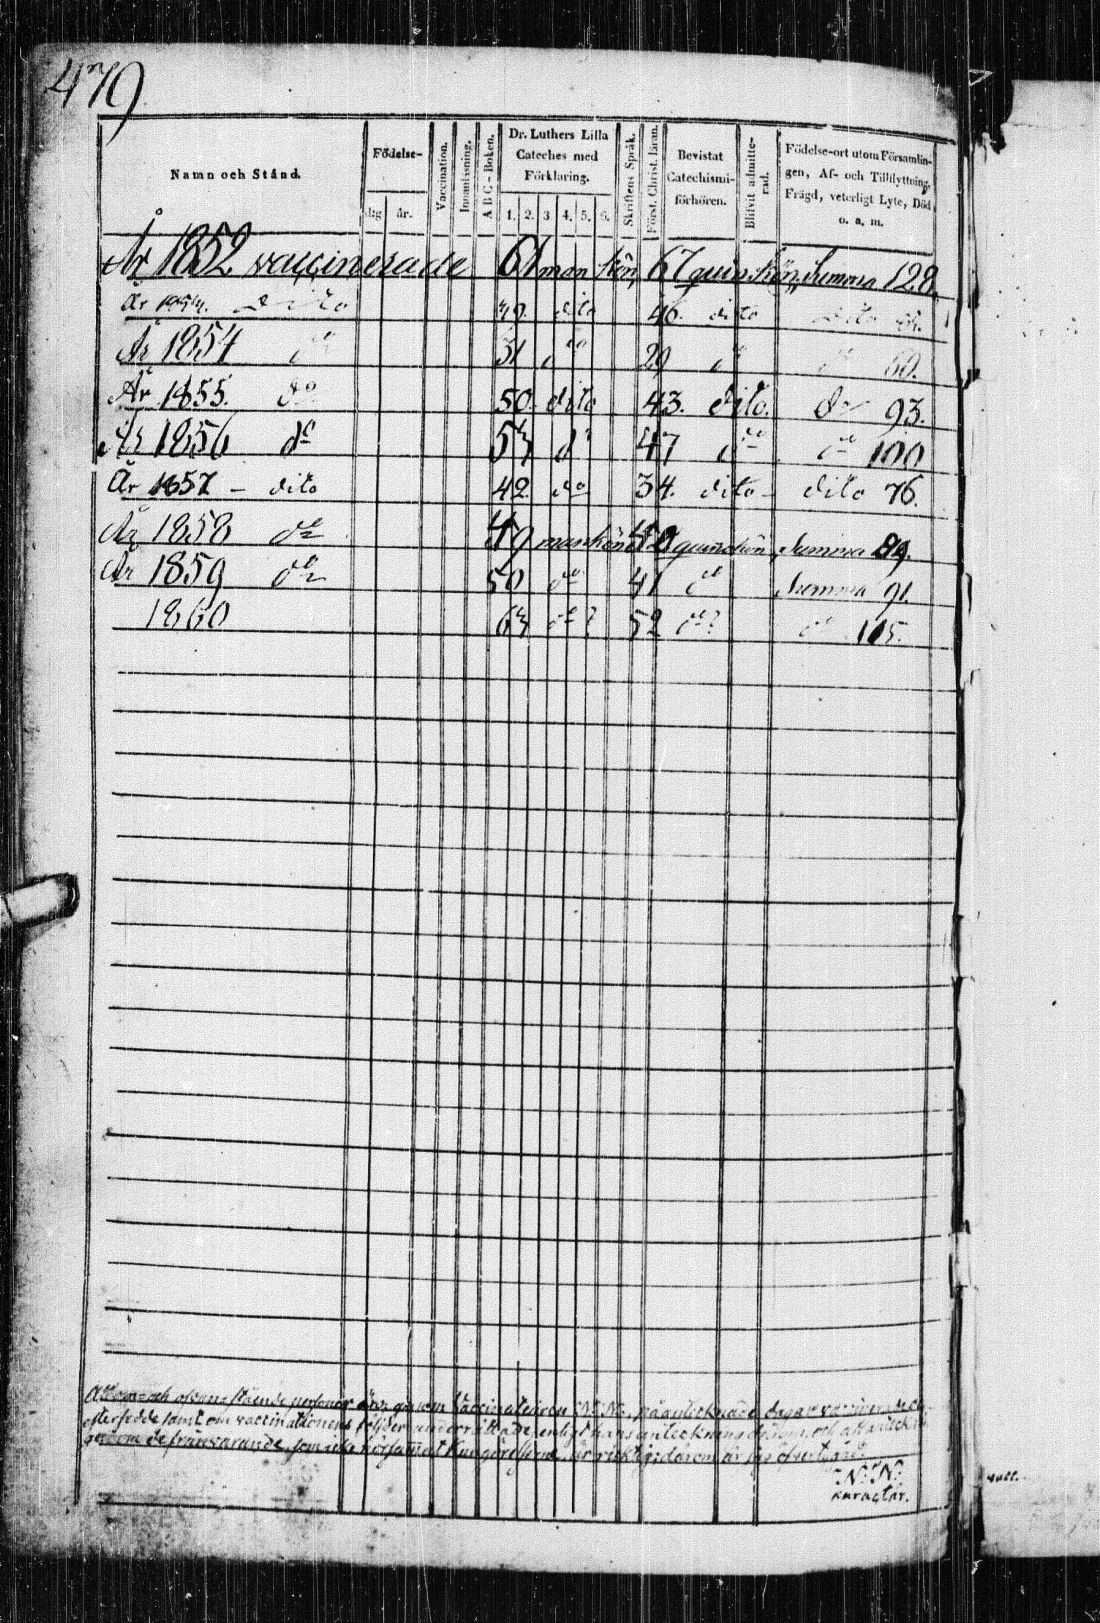 479
Namn och Stånd.
Födelse-
dag
år.
Vaccination.
Innanläsning.
A B C - Boken.
Dr. Luthers Lilla
Cateches med
Förklaring.
1. 2. 3 4. 5. 6.
Skriftens Språk.
Först. Christ. läran.
Bevistat
Catechismi-
förhören.
Blifvit admitte-
rad.
Födelse-ort utom Församlin-
gen, Af- och Tillflyttning,
Frägd, veterligt Lyte, Död
o. a. m.
År 1852 vaccinerade 61 man kön, 67 quin kön, Summa 128.
År dito dito 46. dito dito
År 1854 do 31 do 29 do do 60.
År 1855. do 50. dito 43. dito. do 93.
År 1856 do 53 do 47 do do 100
År 1857 - dito 42. do 34. dito - dito 76.
År 1858 do 49 mankön 40 quinkön, Summa 89.
År 1859 do 50 do 41 do Summa 91.
1860 63 do 52 do do 115.
Att om- och ofvanstående personer genom Vaccinateuren N.N., på antecknade dagar
efterfedde samt om vaccinationens följder underrättade, enligt hans anteckning derom, och att
genom de frånvarande, som
N. N.
karactär.